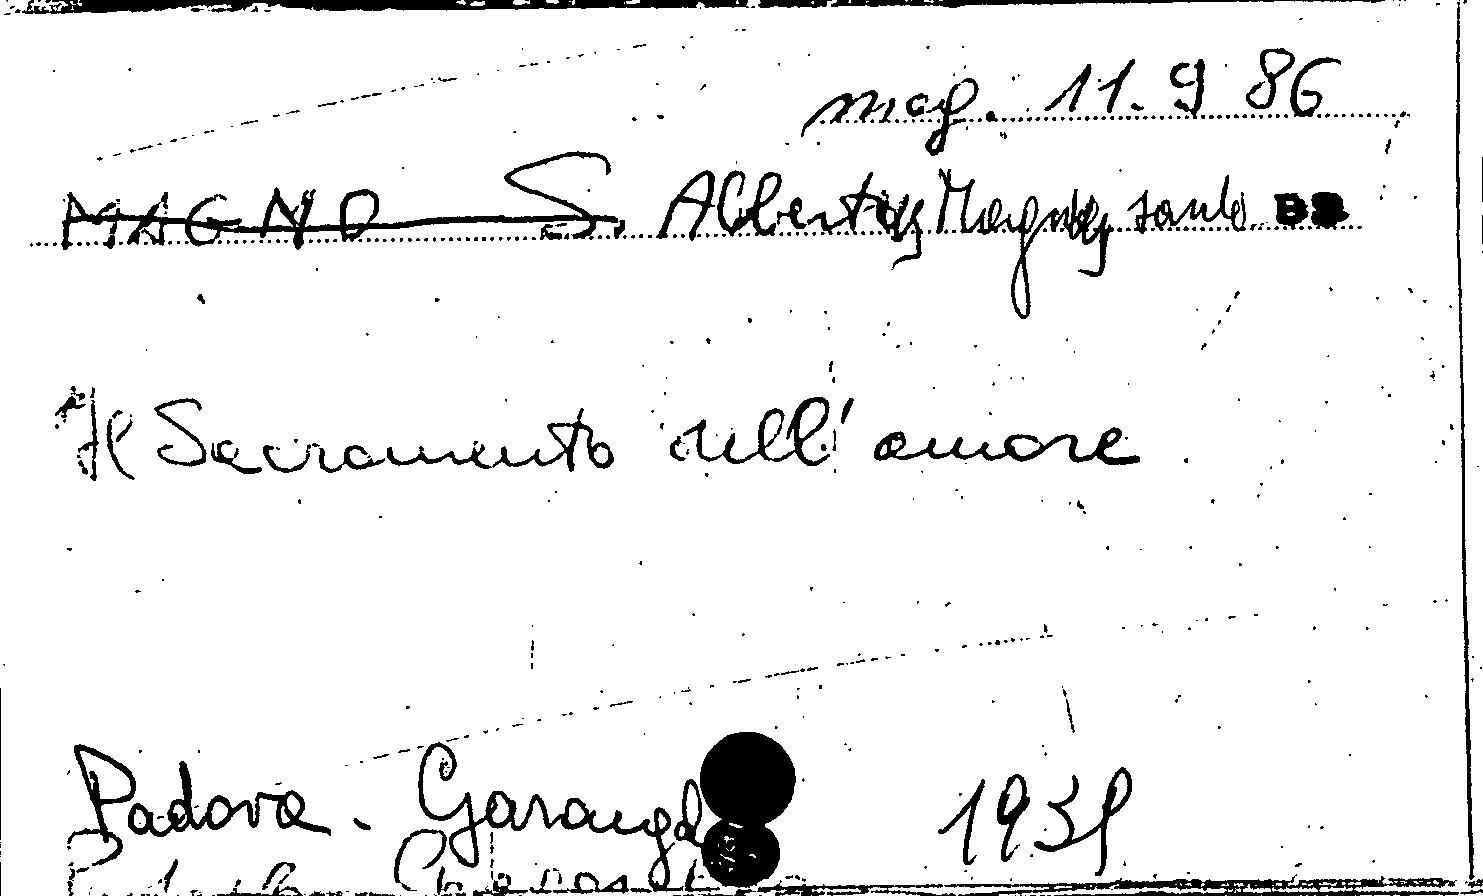 mag. 11. 9 86
MAGNO S. Albertus Magnus, santo
Il Sacramento dell'amore
Padova. Garang 1939